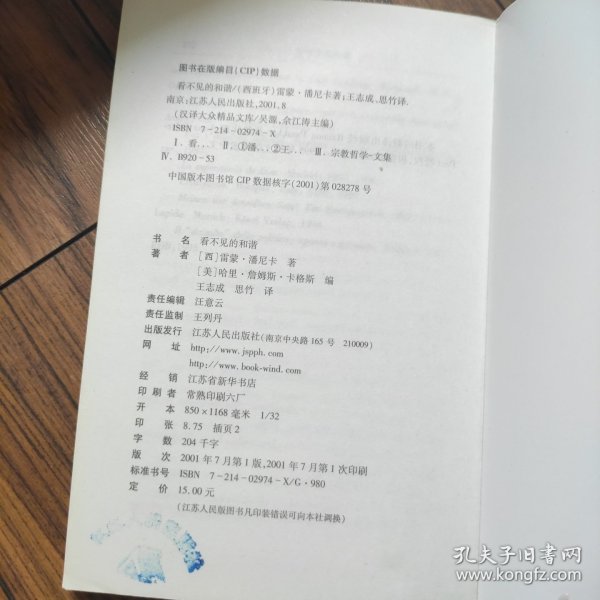 图书在版编目(CIP)数据
看不见的和谐/(西班牙)雷蒙·潘尼卡著;王志成、思竹译.
南京:江苏人民出版社,2001.8
(汉译大众精品文库/吴源,佘江涛主编)
ISBN 7-214-02974-X
Ⅰ.看… Ⅱ.①潘…②王… Ⅲ.宗教哲学-文集
Ⅳ.B920-53
中国版本图书馆CIP数据核字(2001)第028278号
书 名 看不见的和谐
著 者 [西]雷蒙·潘尼卡 著
[美]哈里·詹姆斯·卡格斯 编
王志成 思竹 译
责任编辑 汪意云
责任监制 王列丹
出版发行 江苏人民出版社(南京中央路165号 210009)
网 址 http://www.jspph.com
http://www.book-wind.com
经 销 江苏省新华书店
印 刷 者 常熟印刷六厂
开 本 850×1168毫米 1/32
印 张 8.75 插页2
字 数 204千字
版 次 2001年7月第1版,2001年7月第1次印刷
标准书号 ISBN 7-214-02974-X/G·980
定 价 15.00元
(江苏人民版图书凡印装错误可向本社调换)
孔夫子旧书网
www.kongfz.com